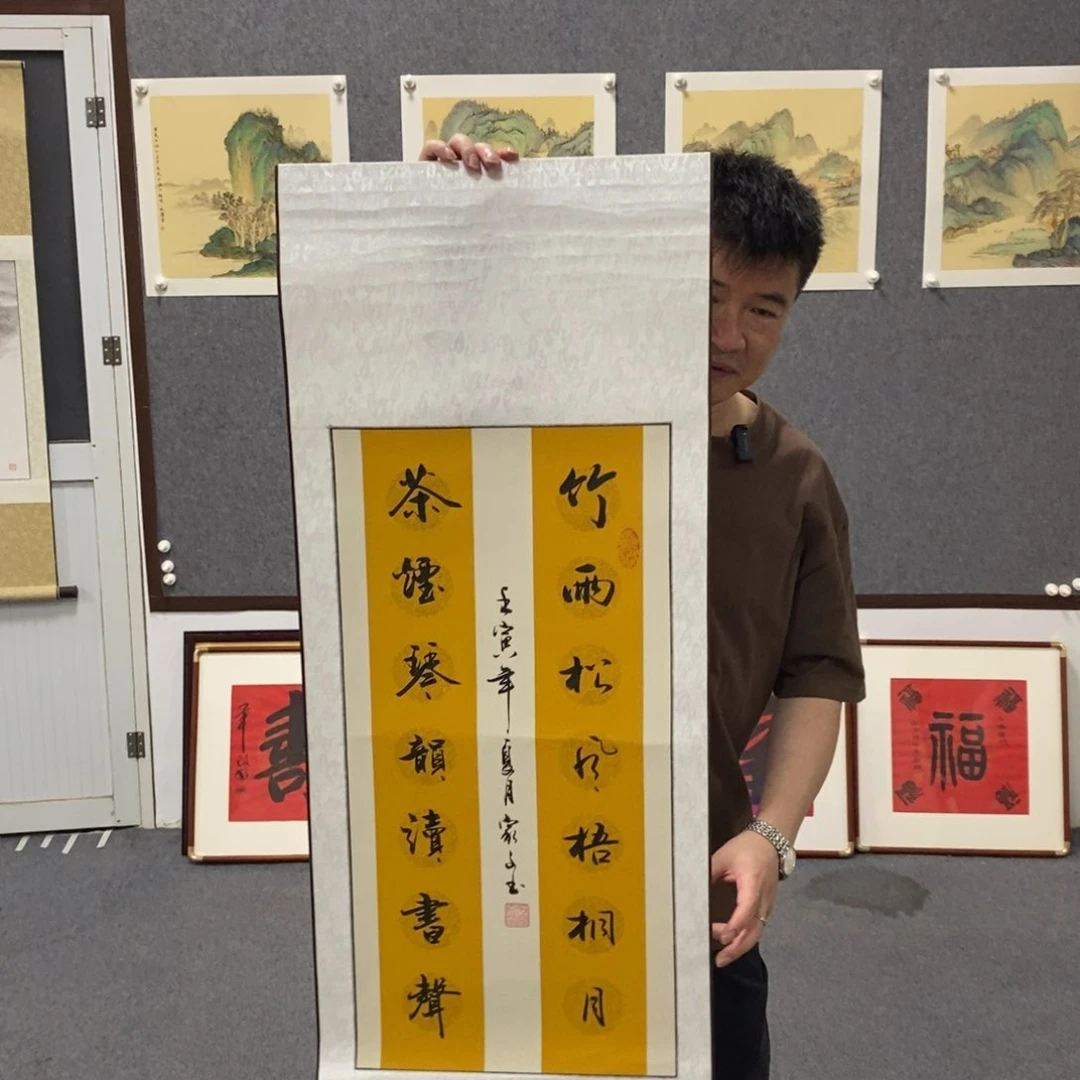 竹雨松风梧桐月
茶煙琴韻讀書聲
壬寅年夏月家文玉
福
壽